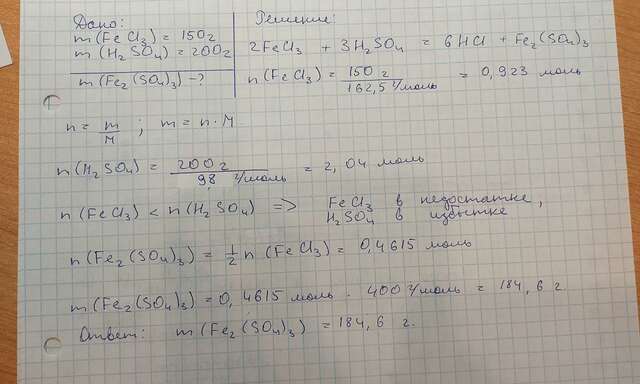 Дано:
m(FeCl3) = 150г
m(H2SO4) = 200г
m(Fe2(SO4)3) - ?
Решение:
2FeCl3 + 3H2SO4 = 6HCl + Fe2(SO4)3
n(FeCl3) = 150г / 162,5 г/моль = 0,923 моль
n = m/M ; m = n · M
n(H2SO4) = 200г / 98 г/моль = 2,04 моль
n(FeCl3) < n(H2SO4) => FeCl3 в недостатке,
H2SO4 в избытке
n(Fe2(SO4)3) = 1/2 n(FeCl3) = 0,4615 моль
m(Fe2(SO4)3) = 0,4615 моль · 400 г/моль = 184,6 г
Ответ: m(Fe2(SO4)3) = 184,6 г.